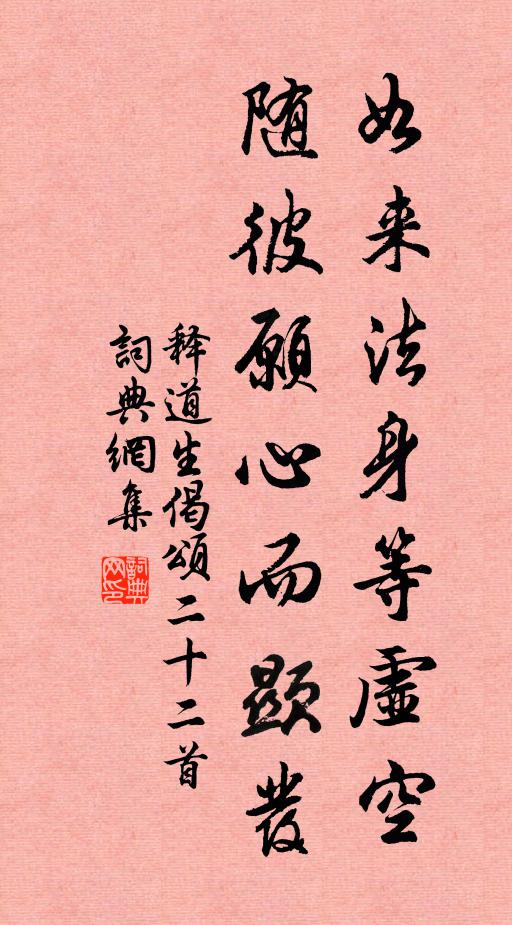 如来法身等虚空
随彼願心而顯發
释道生偈頌二十二首
詞典網集
詞典
网印